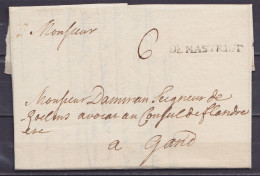 Monsieur
6
DE MASTRICT
Monsieur Damman Seigneur de
avocat au Conseil de flandre
a gand